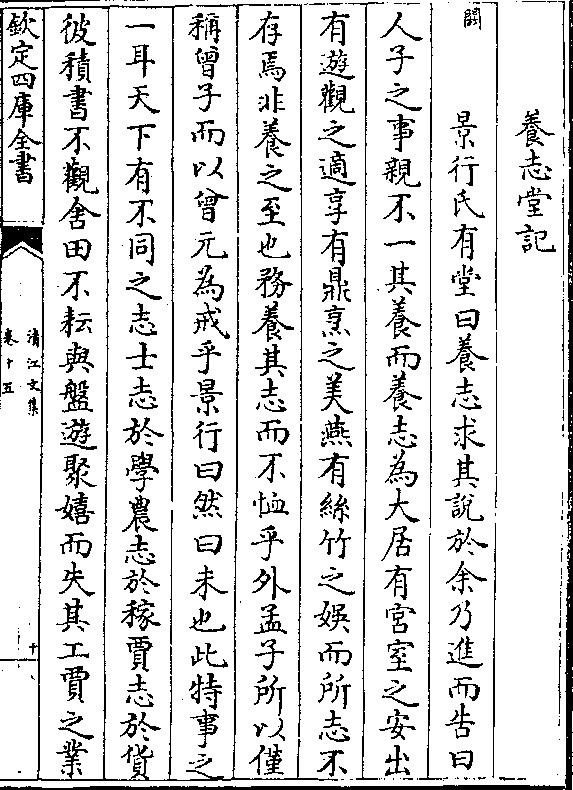 養志堂記
闕
景行氏有堂曰養志求其說於余乃進而告曰
人子之事親不一其養而養志為大居有宮室之安出
有遊觀之適享有鼎烹之美燕有絲竹之娛而所志不
存焉非養之至也務養其志而不恤乎外孟子所以僅
稱曾子而以曾元為戒乎景行曰然曰未也此特事之
一耳天下有不同之志士志於學農志於稼賈志於貨
彼積書不觀舍田不耘與盤遊聚嬉而失其工賈之業
欽定四庫全書
清江文集
卷十五
十